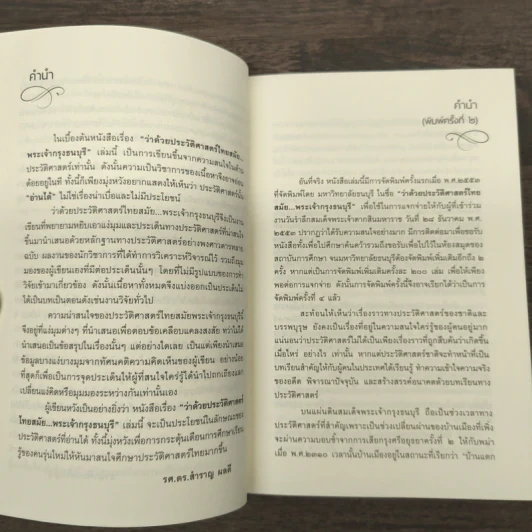 คำนำ
ในเบื้องต้นหนังสือเรื่อง "ว่าด้วยประวัติศาสตร์ไทยสมัย...
พระเจ้ากรุงธนบุรี" เล่มนี้ เป็นการเขียนขึ้นจากความสนใจในด้าน
ประวัติศาสตร์เท่านั้น ดังนั้นความเป็นวิชาการของเนื้อหาจึงอาจอ่อน
ด้อยอยู่ในที ทั้งนี้ก็เพียงมุ่งหวังอยากแสดงให้เห็นว่า ประวัติศาสตร์นั้น
"อ่านได้" ไม่ใช่เรื่องน่าเบื่อและไม่มีประโยชน์
ว่าด้วยประวัติศาสตร์ไทยสมัย...พระเจ้ากรุงธนบุรีจึงเป็นงาน
เขียนที่พยายามหยิบเอาแง่มุมและประเด็นทางประวัติศาสตร์ที่น่าสนใจ
ขึ้นมานำเสนอด้วยหลักฐานทางประวัติศาสตร์อย่างพงศาวดารหลาย
ฉบับ ผลงานของนักวิชาการที่ได้ทำการวิเคราะห์วิจารณ์ไว้ รวมถึงมุม
มองของผู้เขียนเองที่มีต่อประเด็นนั้นๆ โดยที่ไม่มีรูปแบบของการทำ
วิจัยเข้ามาเกี่ยวข้อง ดังนั้นเนื้อหาทั้งหมดจึงแบ่งออกเป็นประเด็นไม่
ได้เป็นบทเป็นตอนดังเช่นงานวิจัยทั่วไป
ความน่าสนใจของประวัติศาสตร์ไทยสมัยพระเจ้ากรุงธนบุรีนี้
จึงอยู่ที่แง่มุมต่างๆ ที่นำเสนอเพื่อตอบข้อเคลือบแคลงสงสัย ทว่าไม่ได้
นำเสนอเป็นข้อสรุปในเรื่องนั้นๆ แต่อย่างใดเลย เป็นแต่เพียงนำเสนอ
ข้อมูลบางแง่บางมุมจากทัศนคติความคิดเห็นของผู้เขียน อย่างน้อย
ที่สุดก็เพื่อเป็นการจุดประเด็นให้ผู้ที่สนใจใคร่รู้ได้นำไปถกเถียงแลก
เปลี่ยนแง่คิดหรือมุมมองระหว่างกันเท่านั้นเอง
ผู้เขียนหวังเป็นอย่างยิ่งว่า หนังสือเรื่อง "ว่าด้วยประวัติศาสตร์
ไทยสมัย...พระเจ้ากรุงธนบุรี" เล่มนี้ จะเป็นประโยชน์ในลักษณะของ
ประวัติศาสตร์ที่อ่านได้ ทั้งนี้มุ่งหวังเพื่อการกระตุ้นเตือนการศึกษาเรียน
รู้ของคนรุ่นใหม่ให้หันมาสนใจศึกษาประวัติศาสตร์ไทยมากขึ้น
รศ.ดร.สำราญ ผลดี
คำนำ
(พิมพ์ครั้งที่ ๒)
อันที่จริง หนังสือเล่มนี้มีการจัดพิมพ์ครั้งแรกเมื่อ พ.ศ.๒๕๕๓
ที่จัดพิมพ์โดย มหาวิทยาลัยธนบุรี ในชื่อ "ว่าด้วยประวัติศาสตร์ไทย
สมัย...พระเจ้ากรุงธนบุรี" เพื่อใช้ในการแจกจ่ายให้กับผู้ที่เข้าร่วม
งานวันรำลึกสมเด็จพระเจ้าตากสินมหาราช วันที่ ๒๘ ธันวาคม พ.ศ.
๒๕๕๓ ปรากฏว่าได้รับความสนใจอย่างมาก มีการติดต่อมาเพื่อขอรับ
หนังสือทั้งเพื่อไปศึกษาค้นคว้ารวมถึงขอรับเพื่อไปไว้ในห้องสมุดของ
สถาบันการศึกษา จนมหาวิทยาลัยธนบุรีต้องจัดพิมพ์เพิ่มเติมอีกถึง ๒
ครั้ง หากแต่เป็นการจัดพิมพ์เพิ่มเติมครั้งละ ๒๐๐ เล่ม เพื่อให้เพียง
พอต่อการแจกจ่าย ดังนั้นการจัดพิมพ์ครั้งนี้จึงอาจเรียกได้ว่าเป็นการ
จัดพิมพ์ครั้งที่ ๔ แล้ว
สะท้อนให้เห็นว่าเรื่องราวทางประวัติศาสตร์ของชาติและ
บรรพบุรุษ ยังคงเป็นเรื่องที่อยู่ในความสนใจใคร่รู้ของผู้คนอยู่มาก
แน่นอนว่าประวัติศาสตร์ไม่ได้เป็นเพียงเรื่องราวที่ถูกสืบค้นว่าเกิดขึ้น
เมื่อไหร่ อย่างไร เท่านั้น หากแต่ประวัติศาสตร์ชาติจะทำหน้าที่เป็น
บทเรียนสำคัญให้กับผู้คนในประเทศได้เรียนรู้ ทำความเข้าใจความจริง
ของอดีต พิจารณาปัจจุบัน และสร้างสรรค์อนาคตด้วยบทเรียนทาง
ประวัติศาสตร์
บนแผ่นดินสมเด็จพระเจ้ากรุงธนบุรี ถือเป็นช่วงเวลาทาง
ประวัติศาสตร์ที่สำคัญเพราะเป็นช่วงเปลี่ยนผ่านของบ้านเมืองที่เพิ่ง
จะผ่านความบอบช้ำจากการเสียกรุงศรีอยุธยาครั้งที่ ๒ ให้กับพม่า
เมื่อ พ.ศ.๒๓๑๐ เวลานั้นบ้านเมืองอยู่ในสถานะที่เรียกว่า "บ้านแตก